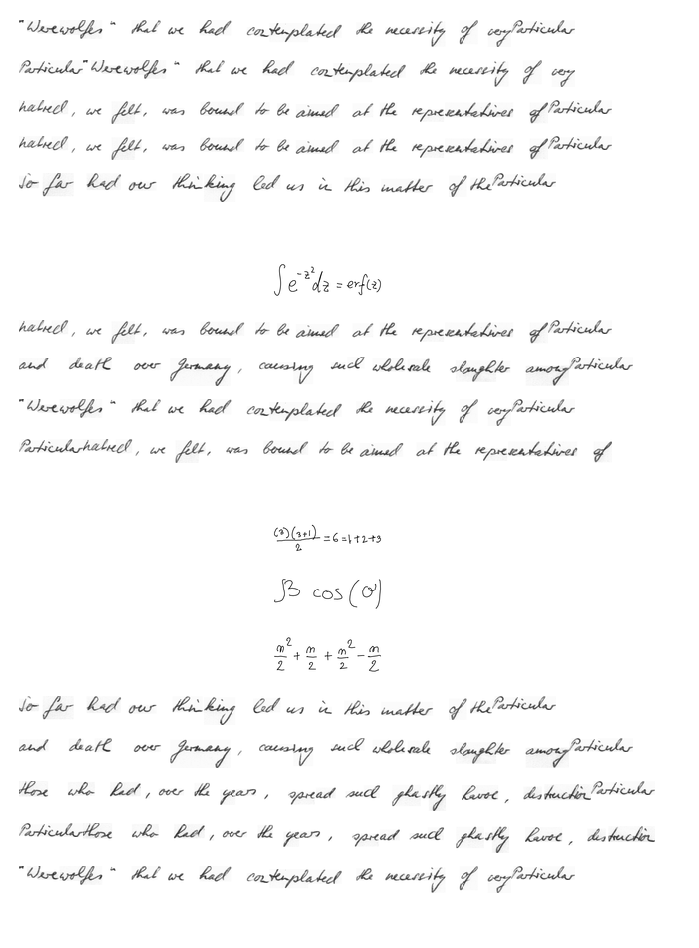 "Werewolfes" that we had contemplated the necessity of veryParticular
Particular"Werewolfes" that we had contemplated the necessity of very
hatred, we felt, was bound to be aimed at the representatives ofParticular
hatred, we felt, was bound to be aimed at the representatives ofParticular
So far had our thinking led us in this matter of theParticular
∫e^{-z^2}dz = erf(z)
hatred, we felt, was bound to be aimed at the representatives ofParticular
and death over Germany, causing such wholesale slaughter amongParticular
"Werewolfes" that we had contemplated the necessity of veryParticular
Particularhatred, we felt, was bound to be aimed at the representatives of
\frac{(3)(3+1)}{2} = 6 = 1+2+3
∫3 cos(σ)
\frac{m^2}{2} + \frac{m}{2} + \frac{m^2}{2} - \frac{m}{2}
So far had our thinking led us in this matter of theParticular
and death over Germany, causing such wholesale slaughter amongParticular
those who had, over the years, spread such ghastly havoc, destructionParticular
Particularthose who had, over the years, spread such ghastly havoc, destruction
"Werewolfes" that we had contemplated the necessity of veryParticular